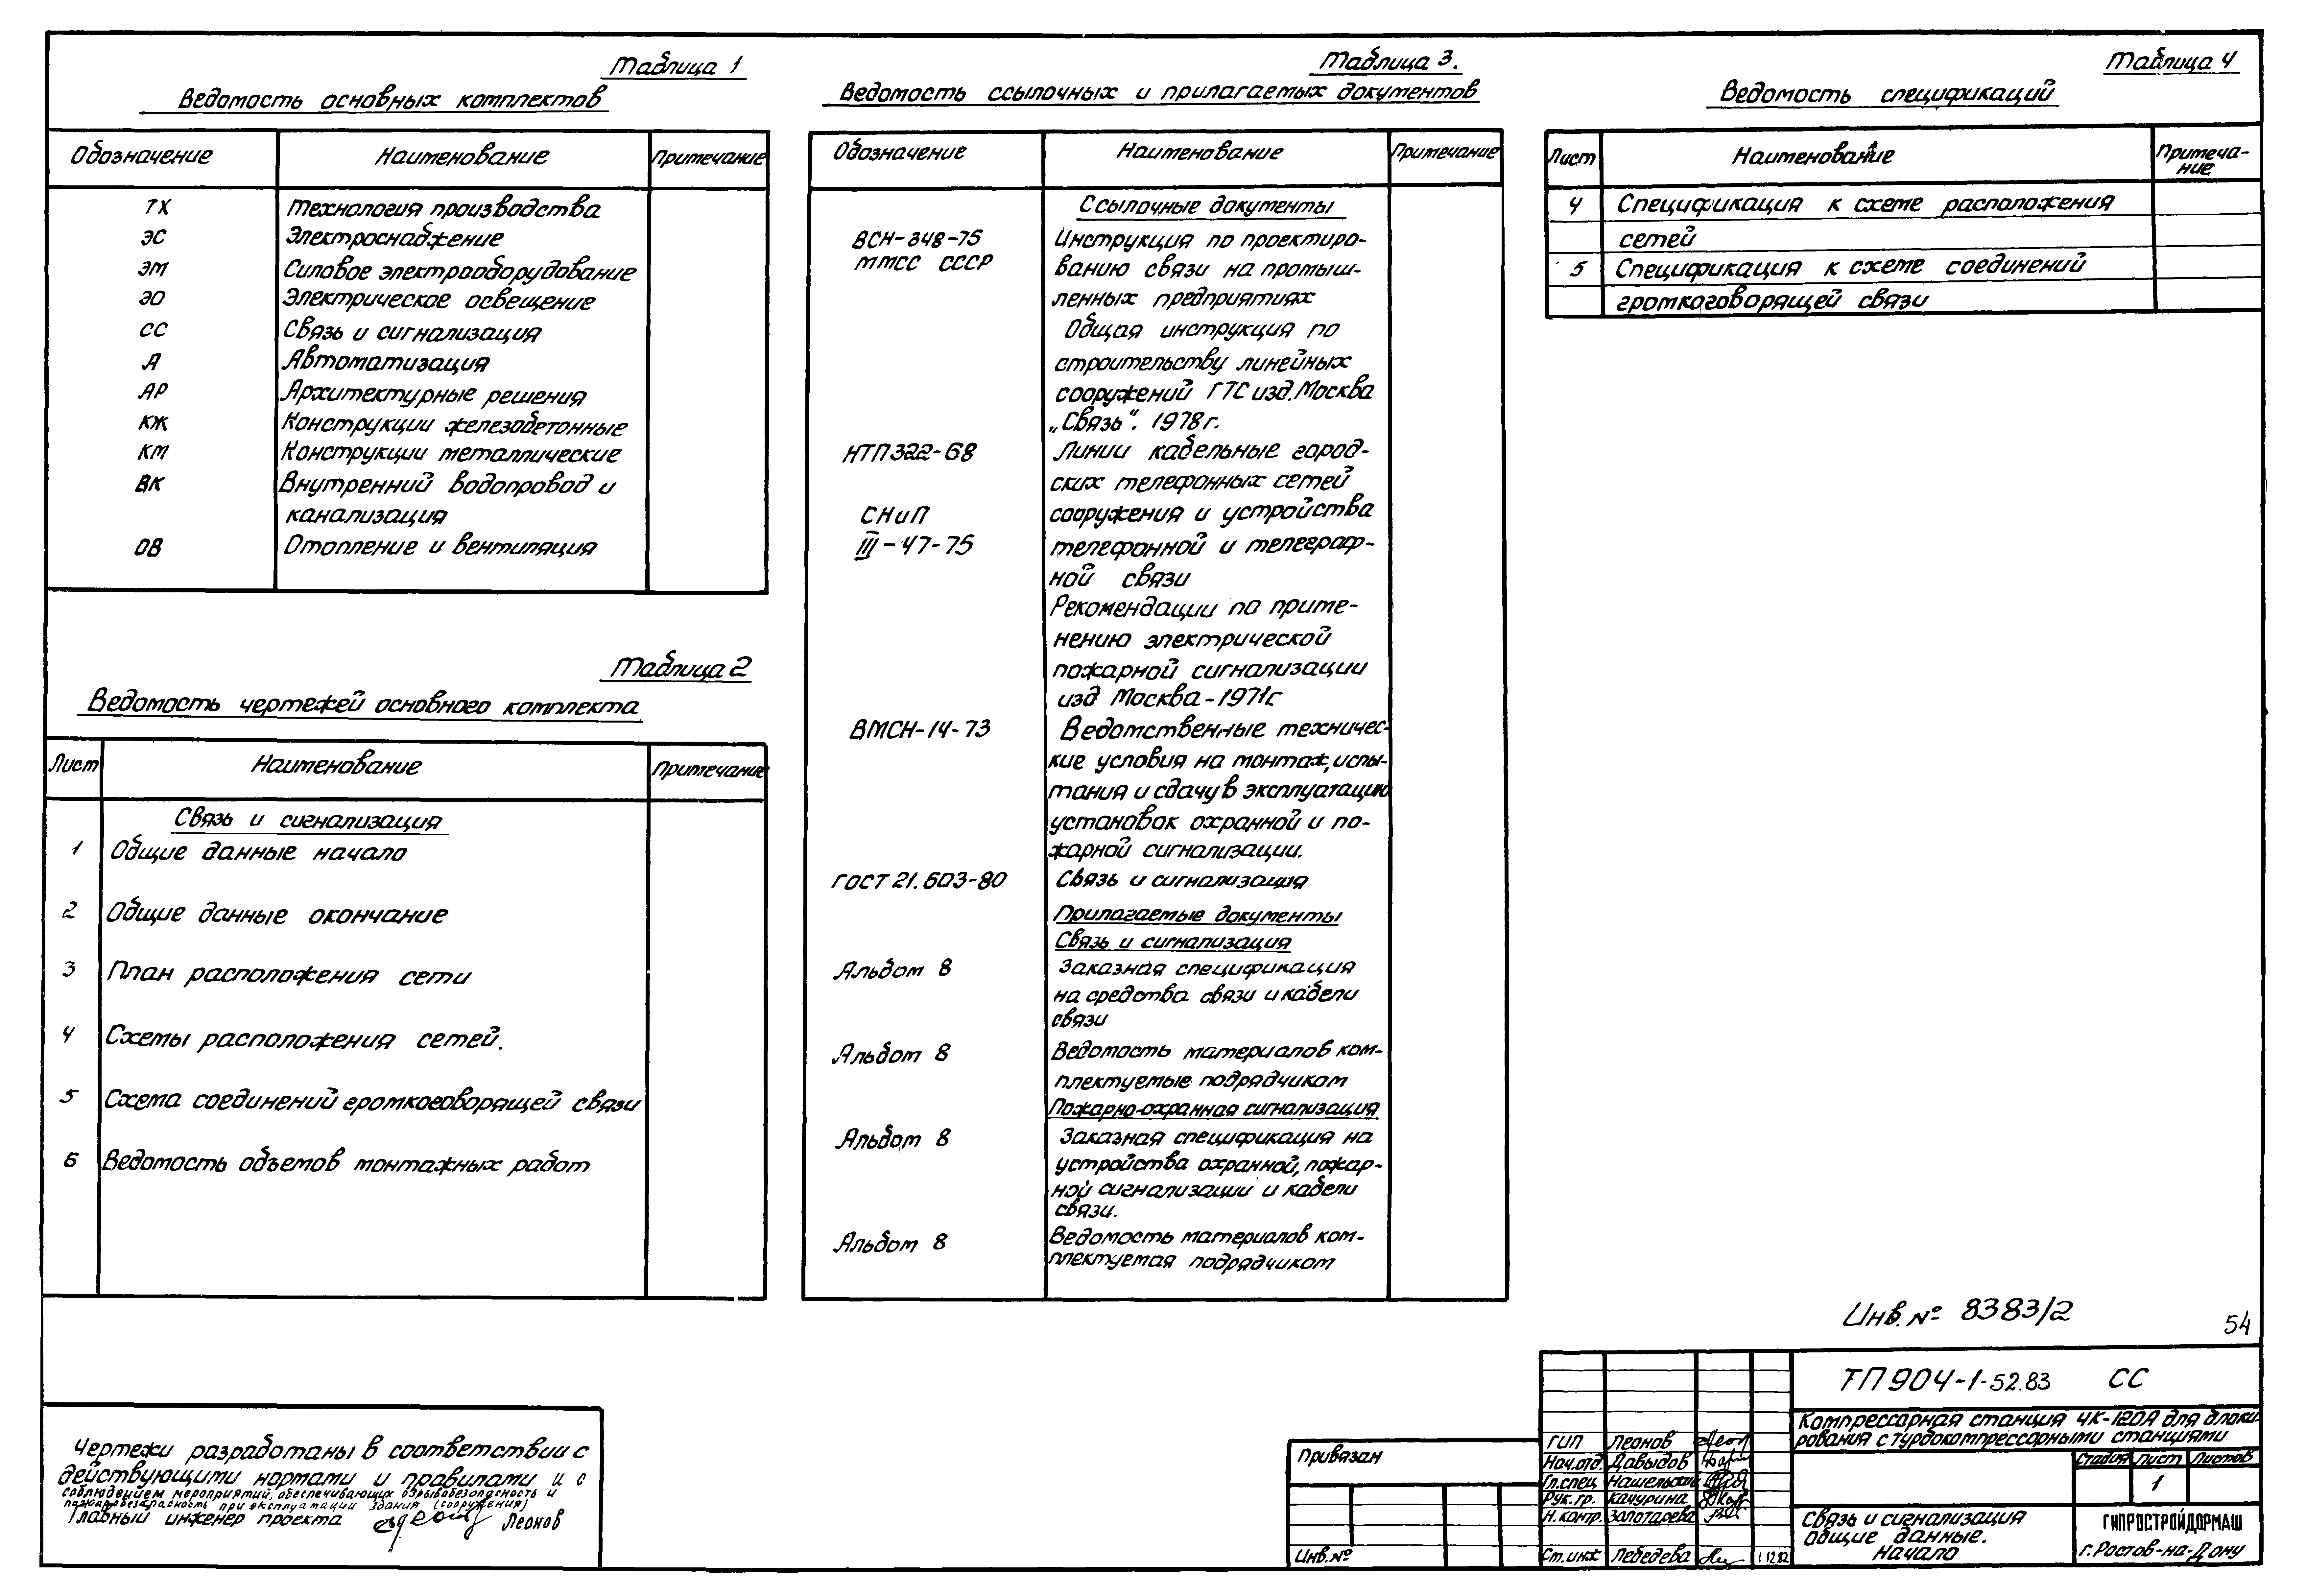 Таблица 1
Ведомость основных комплектов
Обозначение Наименование Примечание
ТХ Технология производства
ЭС Электроснабжение
ЭМ Силовое электрооборудование
ЭО Электрическое освещение
СС Связь и сигнализация
А Автоматизация
АР Архитектурные решения
КЖ Конструкции железобетонные
КМ Конструкции металлические
ВК Внутренний водопровод и
канализация
ОВ Отопление и вентиляция
Таблица 2
Ведомость чертежей основного комплекта
Лист Наименование Примечание
Связь и сигнализация
1 Общие данные начало
2 Общие данные окончание
3 План расположения сети
4 Схемы расположения сетей.
5 Схема соединений громкоговорящей связи
6 Ведомость объемов монтажных работ
Таблица 3.
Ведомость ссылочных и прилагаемых документов
Обозначение Наименование Примечание
Ссылочные документы
ВСН-348-75 Инструкция по проектиро-
ММСС СССР ванию связи на промыш-
ленных предприятиях
Общая инструкция по
строительству линейных
сооружений ГТС изд. Москва
„Связь". 1978г.
НТП 322-68 Линии кабельные город-
ских телефонных сетей
СНиП сооружения и устройства
III-47-75 телефонной и телеграф-
ной связи
Рекомендации по приме-
нению электрической
пожарной сигнализации
изд Москва-1971г
ВМСН-14-73 Ведомственные техничес-
кие условия на монтаж, испы-
тания и сдачу в эксплуатацию
установок охранной и по-
жарной сигнализации.
ГОСТ 21.603-80 Связь и сигнализация
Прилагаемые документы
Связь и сигнализация
Альбом 8 Заказная спецификация
на средства связи и кабели
связи
Альбом 8 Ведомость материалов ком-
плектуемые подрядчиком
Пожарно-охранная сигнализация
Альбом 8 Заказная спецификация на
устройства охранной, пожар-
ной сигнализации и кабели
связи.
Альбом 8 Ведомость материалов ком-
плектуемая подрядчиком
Таблица 4
Ведомость спецификаций
Лист Наименование Примеча-
ние
4 Спецификация к схеме расположения
сетей
5 Спецификация к схеме соединений
громкоговорящей связи
Инв. № 8383/2
54
Чертежи разработаны в соответствии с
действующими нормами и правилами и с
соблюдением мероприятий, обеспечивающих взрывобезопасность и
пожаробезопасность при эксплуатации здания (сооружения)
Главный инженер проекта Леонов
Привязан
Инв. №
ГИП Леонов
Нач.отд. Давыдов
Гл.спец Нашельский
Рук. гр. Качурина
Н. контр. Золотарева
Ст. инж Лебедева 1.12.82
ТП 904-1-52.83 СС
Компрессорная станция 4К-120А для блоки-
рования с турбокомпрессорными станциями
Стадия Лист Листов
1
Связь и сигнализация
общие данные.
Начало
ГИПРОСТРОЙДОРМАШ
г. Ростов-на-Дону